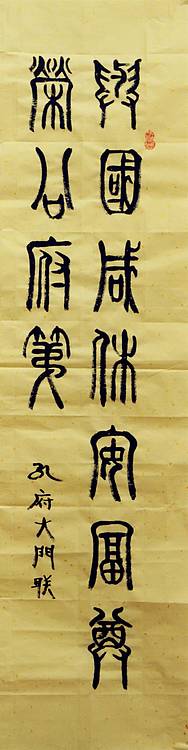 與國咸休安冨尊
榮公府第
孔府大門联